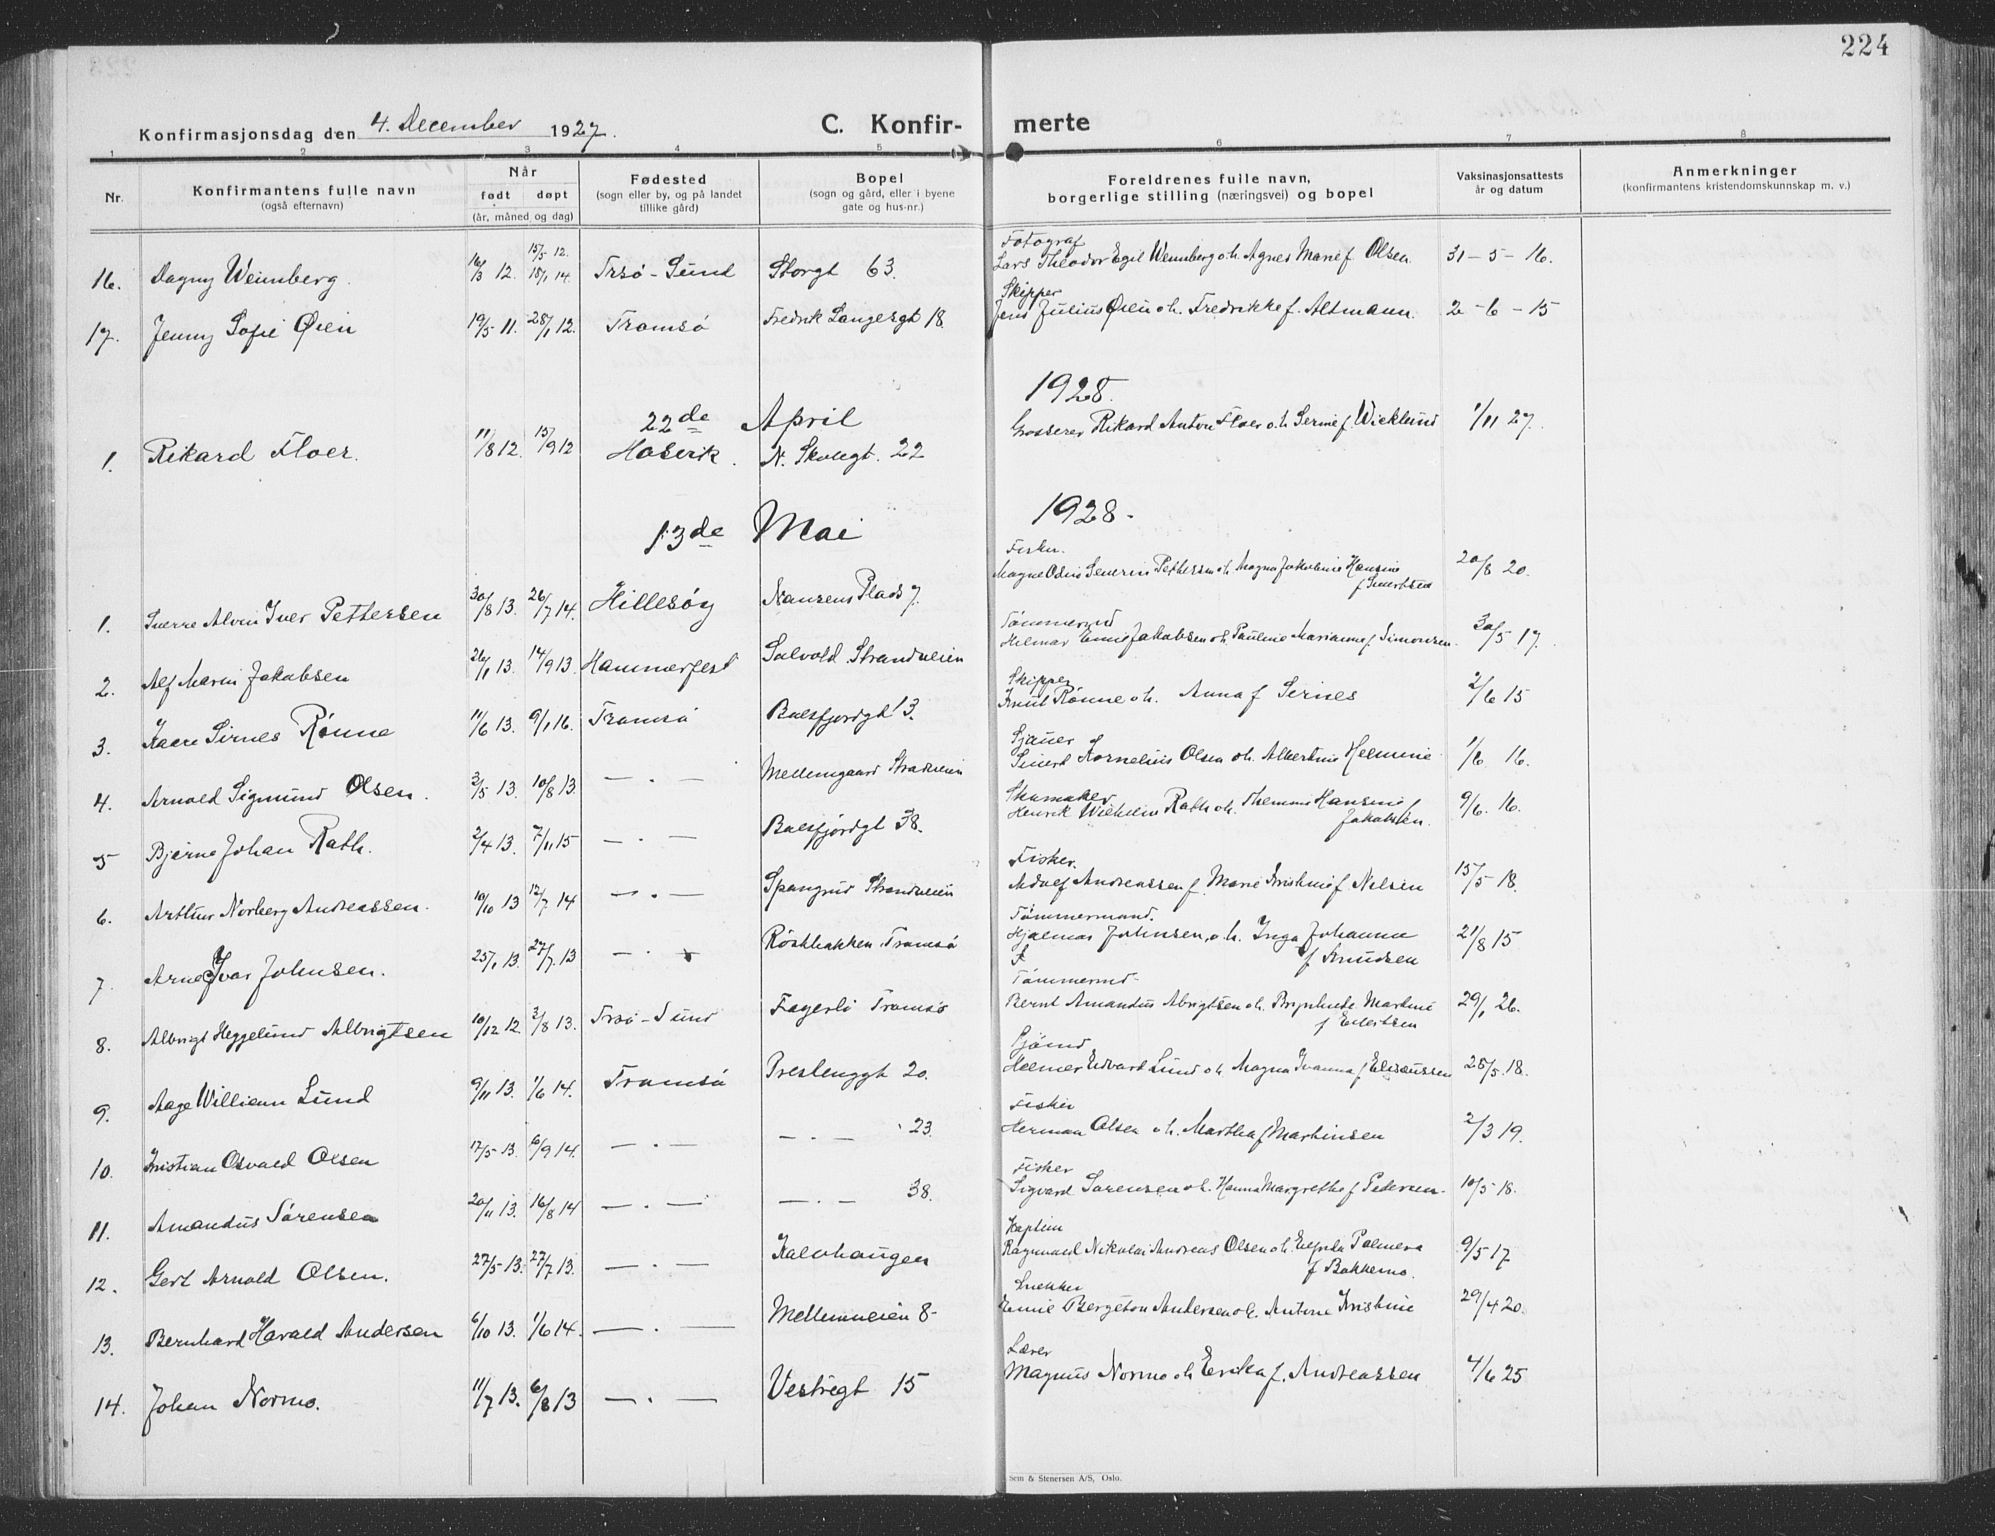 224
Konfirmasjonsdag den 4. December 1927. C. Konfir- merte
1 2 3 4 5 6 7 8
Nr. Konfirmantens fulle navn (også efternavn) Når født døpt (år, måned og dag) Fødested (sogn eller by, og på landet tillike gård) Bopel (sogn og gård, eller i byene gate og hus-nr.) Foreldrenes fulle navn, borgerlige stilling (næringsvei) og bopel Vaksinasjonsattests år og datum Anmerkninger (konfirmantens kristendomskunnskap m. v.)
15/5 12. Fotograf
16. Dagny Wennberg. 16/3 12. 18/1 14. Trsø-Sund Storgt 63. Lars Theodor Egil Wennberg o.h. Agnes Marie f Olsen. 31-5-16.
Skipper
17. Jenny Sofie Øien 19/5 11. 28/1 12. Tromsø Fredrik Langesgt 18. Jens Julius Øien o.h. Fredrikke f. Altmann. 2-6-15
22de April 1928.
1. Rikard Floer. 11/8 12. 15/9 12 Hasvik. N. Skolegt. 22 Grosserer Rikard Anton Floer o.h. Serine f Wicklund 1/11 27.
13de Mai 1928.
Fisker.
1. Sverre Alvin Iver Pettersen 30/8 13. 26/7 14. Hillesøy Nansens Plads 7. Magne Odin Severin Pettersen o.h. Magna Jakobine Hansine f Sivertsen 20/8 20.
Tømmermd
2. Alf Marin Jakobsen 26/1 13. 14/9 13 Hammerfest Solvold Strandveien Hilmar Emil Jakobsen o.h. Pauline Marianne f. Simonsen. 30/5 17.
Skipper
3. Kaare Sirnes Rønne 11/6 13. 9/1 16. Tromsø Balsfjordgt 3. Knut Rønne o.h. Anna f Sirnes 2/6 15
Sjauer
4. Arnold Sigmund Olsen. 3/5 13. 10/8 13 — . — Mellemgaard Strandveien Sivert Kornelius Olsen o.h. Albertine Helmine 1/6 16.
Skomaker
5 Bjarne Johan Rath. 2/4 13. 7/11 15 — . — Balsfjordgt 38. Henrik Wilhelm Rath o.h. Hansine f Jakobsen. 9/6. 16.
Fisker.
6. Arthur Norberg Andreassen. 10/10 13 12/7 14 — . — Strandveien Adolf Andreassen f Marie Kristine f Nilsen 15/5 18.
Tømmermand.
7. Arne Ivar Johnsen. 25/1 13. 27/7. 13 — . — Røstbakken Tromsø Hjalmar Johnsen, o.h. Inga Johanne f Knudsen 21/8 15
Tømmermd-
8. Albrigt Heggelund Albrigtsen 10/12 12. 3/8 13. Trsø-Sund Fagerli Tromsø Bernt Amandus Albrigtsen o.h. Brynhilde Martine f Eilertsen 29/1 26.
Sjømd
9. Aage William Lund 9/11 13. 1/6 14. Tromsø Prestenggt 20. Helmer Edvard Lund o.h. Magna Ivanna f Eliseussen 28/5. 18.
Fisker
10. Kristian Osvald Olsen 17/5 13. 6/9 14. — . — — . — 23. Herman Olsen o.h. Martha f Martinsen 2/3 19.
Fisker
11. Amandus Sørensen 20/11 13. 16/8 14 — . — — . — 38. Sigvard Sørensen o.h. Hanna Margrethe f Pedersen. 10/5 18.
Kaptein
12. Gert Arnold Olsen. 27/5 13. 27/7 13. — . — Kalvhaugen Ragnvald Nikolai Andreas Olsen o.h. Elfrida Palmera f Bakkemo. 9/5 17
Snekker
13. Bernhard Harald Andersen 6/10 13. 1/6 14. — . — Mellemveien 8- Emil Bergeton Andersen o.h. Antone Kristine 29/4 20.
Lærer
14. Johan Normo. 11/7 13. 6/8 13 — . — Vestregt 15 Magnus Normo o.h. Erika f. Andreassen 4/6 25
Sem & Stenersen A/S, Oslo.